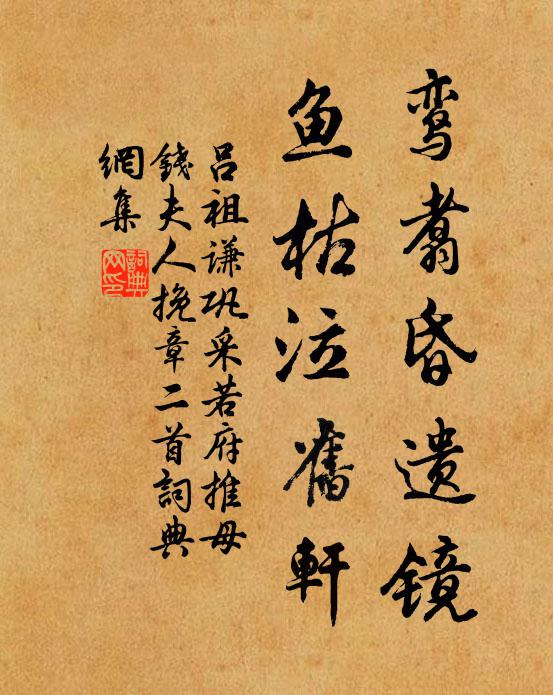 鸾翥昏遗镜
鱼枯泣舊軒
吕祖谦巩采若府推母
錢夫人挽章二首詞典
網集
詞典
网印